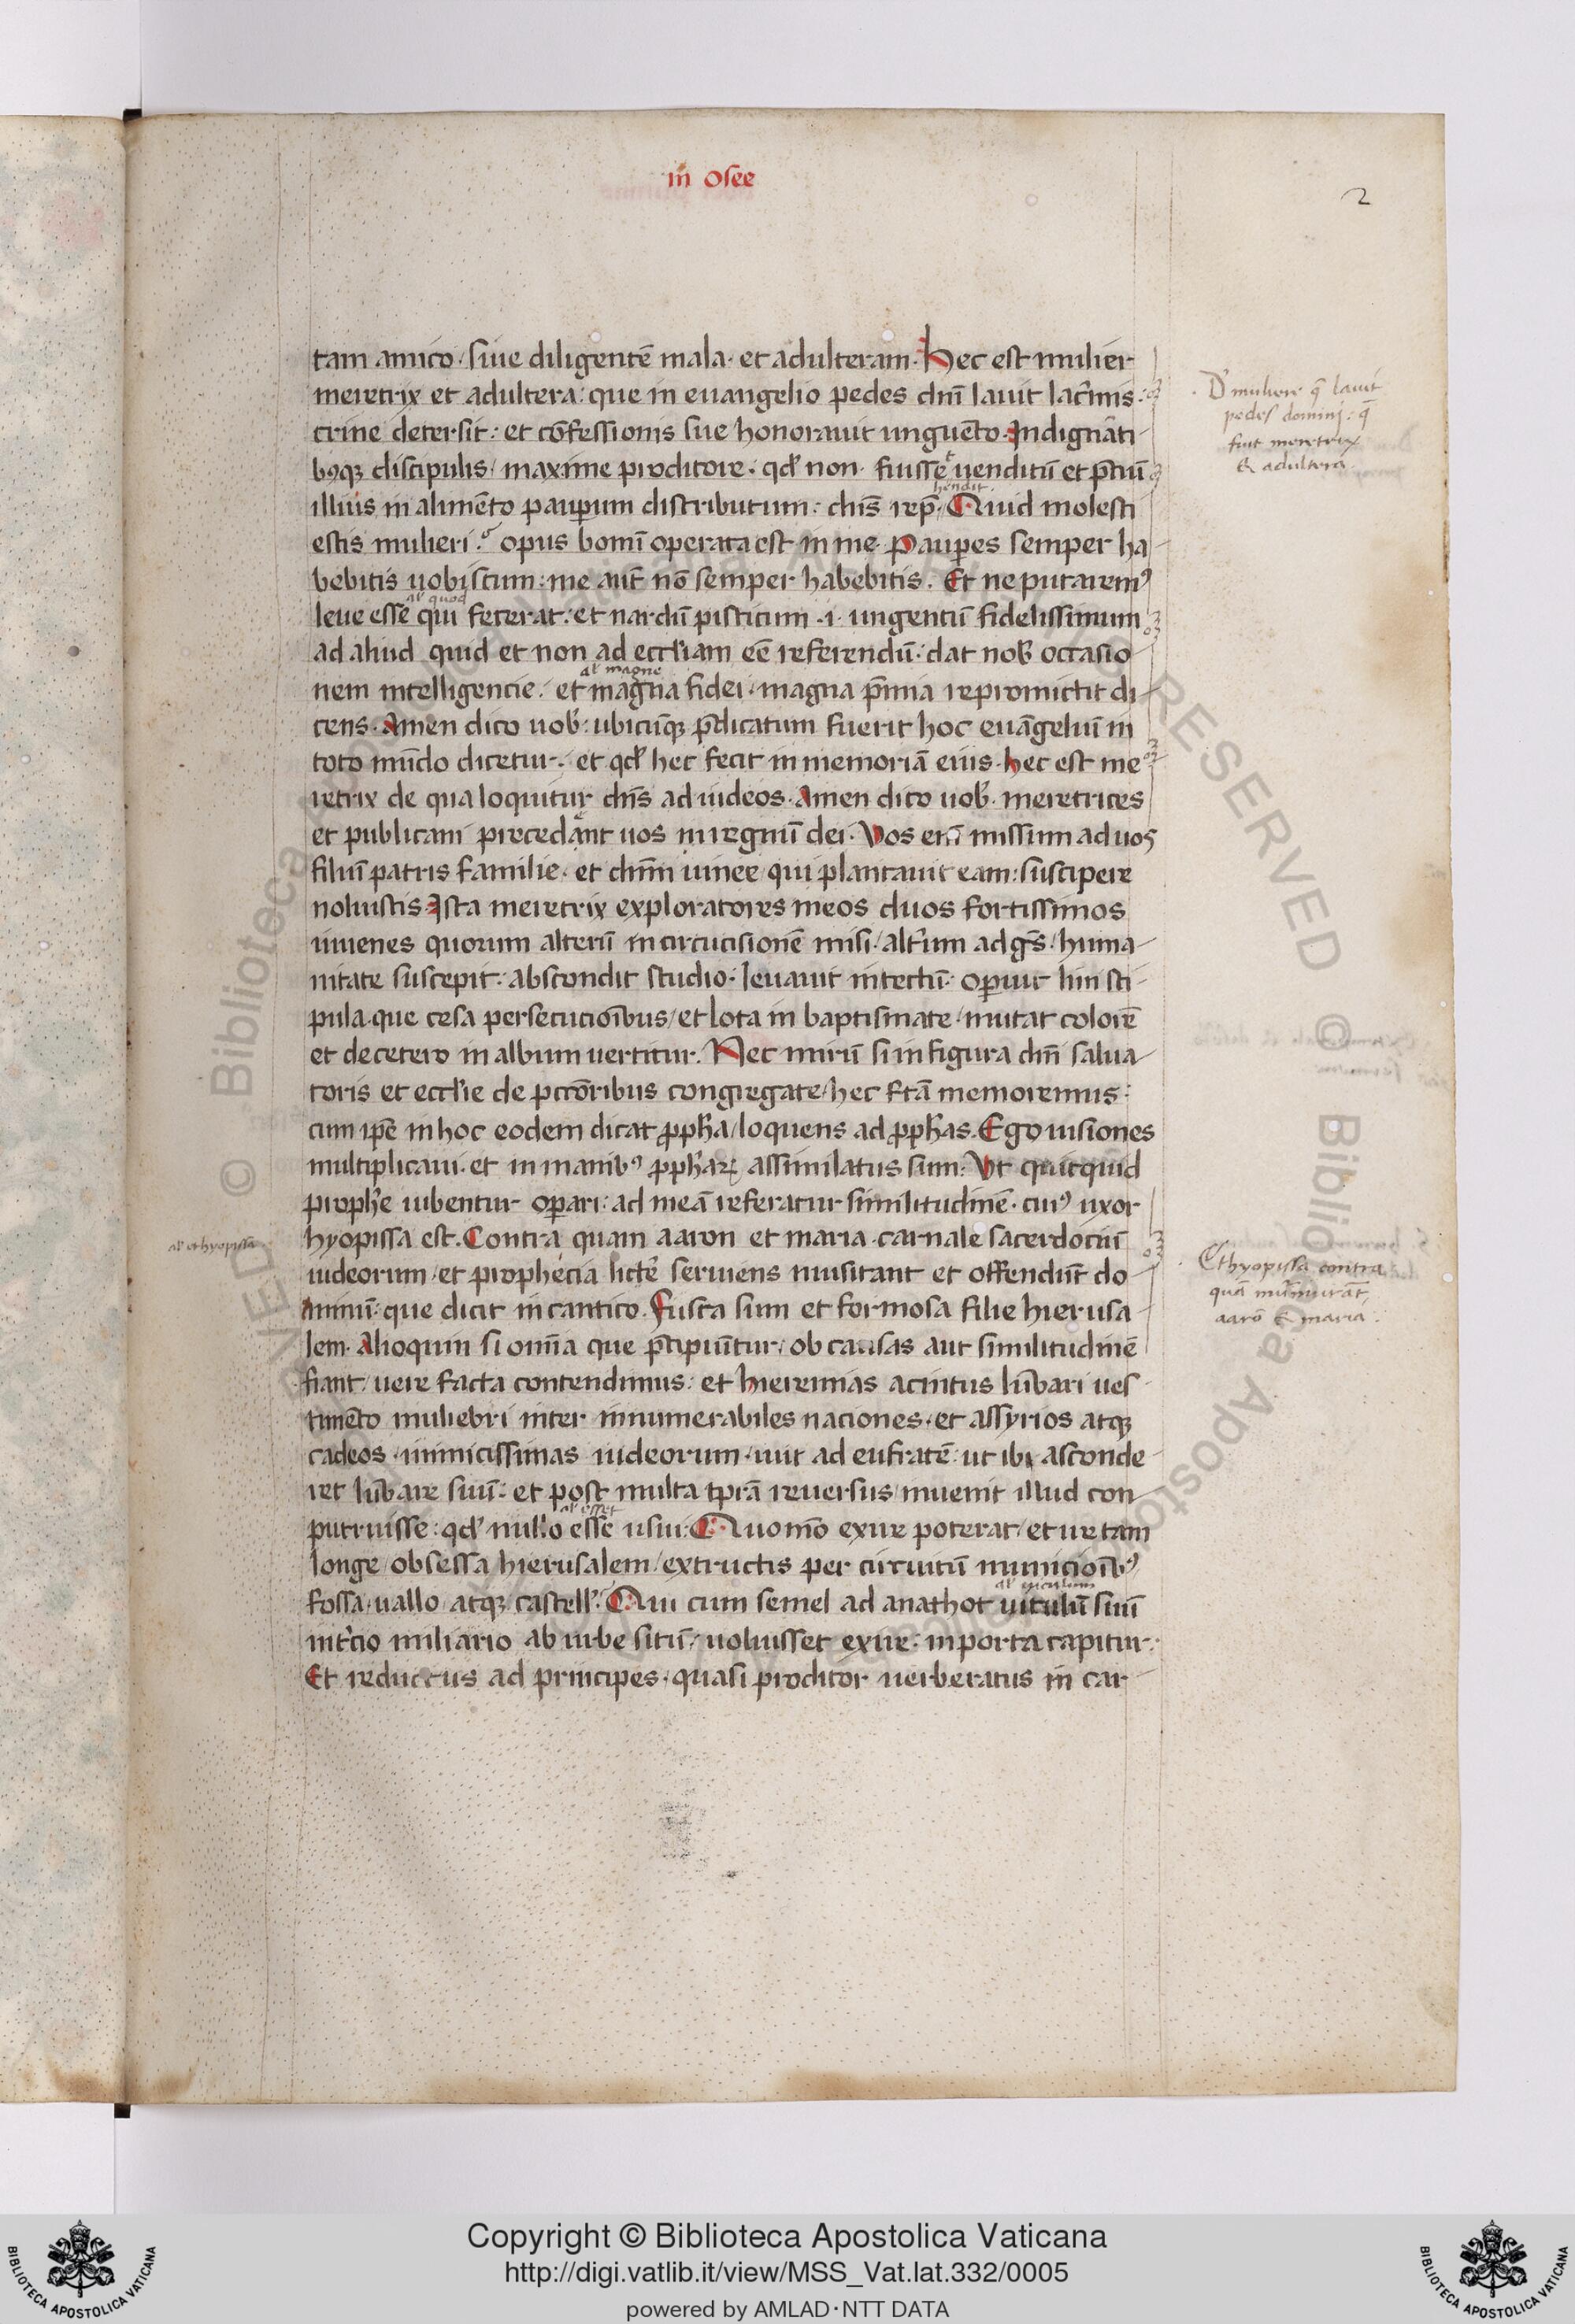 in Osee
2
tam amico / siue diligentē mala · et adulteram · Hec est mulier
meretrix et adultera : que in euangelio pedes dnī lauit lac̓mis :
crine detersit : et cōfessionis sue honorauit unguēto · Indignāti
bꝰqꝫ discipulis / maxime proditore · qđ non fuisset uenditū et p̄ciū
illius in alimēto paup̱um distributum : dn̄s rep̄hendit · Quid molesti
estis mulieri ? opus bonū operata est in me · Paup̱es semper ha
bebitis uobiscum : me aut̄ nō semper habebitis . Et ne putaremꝰ
al' quod
leue esse qui fecerat : et nardū pisticum · i · ungentū fidelissimum
ad aliud quid et non ad eccl'iam eē referendū · dat nob' occasio
al' magne
nem intelligencie : et magna fidei · magna p̄mia repromittit di
cens · Amen dico uob' : ubicūqꝫ p̄dicatum fuerit hoc euāgeliū in
toto mūdo dicetur · et qđ hec fecit in memoriā eius · hec est me
retrix de qua loquitur dn̄s ad iudeos · Amen dico uob' · meretrices
et publicani precedant uos in regnū dei · Vos enī missum ad uos
filiū patris familie · et dn̄m uinee qui plantauit eam : suscipere
noluistis · Ista meretrix exploratores meos duos fortissimos
iuuenes quorum alterū in circūcisionē misi / alt̓um ad gn̄s / huma
nitate suscepit : abscondit studio · leuauit in tectū · op̱uit lini sti
pula · que cesa persecucioībus / et lota in baptismate / mutat colorē
et de cetero in album uertitur . Nec mirū si in figura dn̄i salua
toris et eccl'ie de pccōribus congregate / hec fc̄a memoremus :
cum ip̄e in hoc eodem dicat ꝓph̄a / loquens ad ꝓph̄as . Ego uisiones
multiplicaui · et in manibꝰ ꝓph̄aꝝ assimilatus sum : Vt quicquid
proph̄e iubentur op̱ari : ad meā referatur similitudinē · cuiꝰ uxor
al' ethyopissa
hyopissa est . Contra quam aaron et maria · carnale sacerdociū
iudeorum / et prophecia lict̓e seruiens musitant et offendūt do
minū : que dicit in cantico . Fusca sum et formosa filie hierusa
lem · Alioquin si omīa que p̄cipiūtur / ob causas aut similitudinē
fiant / uere facta contendimus : et hieremias acintus lūbari ues
timēto muliebri inter innumerabiles naciones · et assyrios atqꝫ
cadeos · inimicissimas iudeorum · iuit ad eufratē : ut ibi asconde
ret lūbare suū : et post multa tp̄rā reuersus inuenit illud con
al' esset
putruisse : qđ nullo esse usui · Quomō exire poterat / et ire tam
longe / obsessa hierusalem / extructis per circuitū municioībꝰ /
al' uiculum
fossa / uallo atqꝫ castell' . Qui cum semel ad anathot uitulū suū
in t̓cio miliario ab urbe sitū / uoluisset exire : in porta capitur :
Et reductus ad principes · quasi proditor uerberatus in car
D' muliere q̄ lauit
pedes domini : q̄
fuit meretrix
& adultera
Ethyopissa contra
quā murmurāt,
aarō & maria .
© Biblioteca Apostolica Vaticana
RESERVED
Copyright © Biblioteca Apostolica Vaticana
http://digi.vatlib.it/view/MSS_Vat.lat.332/0005
powered by AMLAD·NTT DATA
BIBLIOTECA APOSTOLICA VATICANA
BIBLIOTECA APOSTOLICA VATICANA